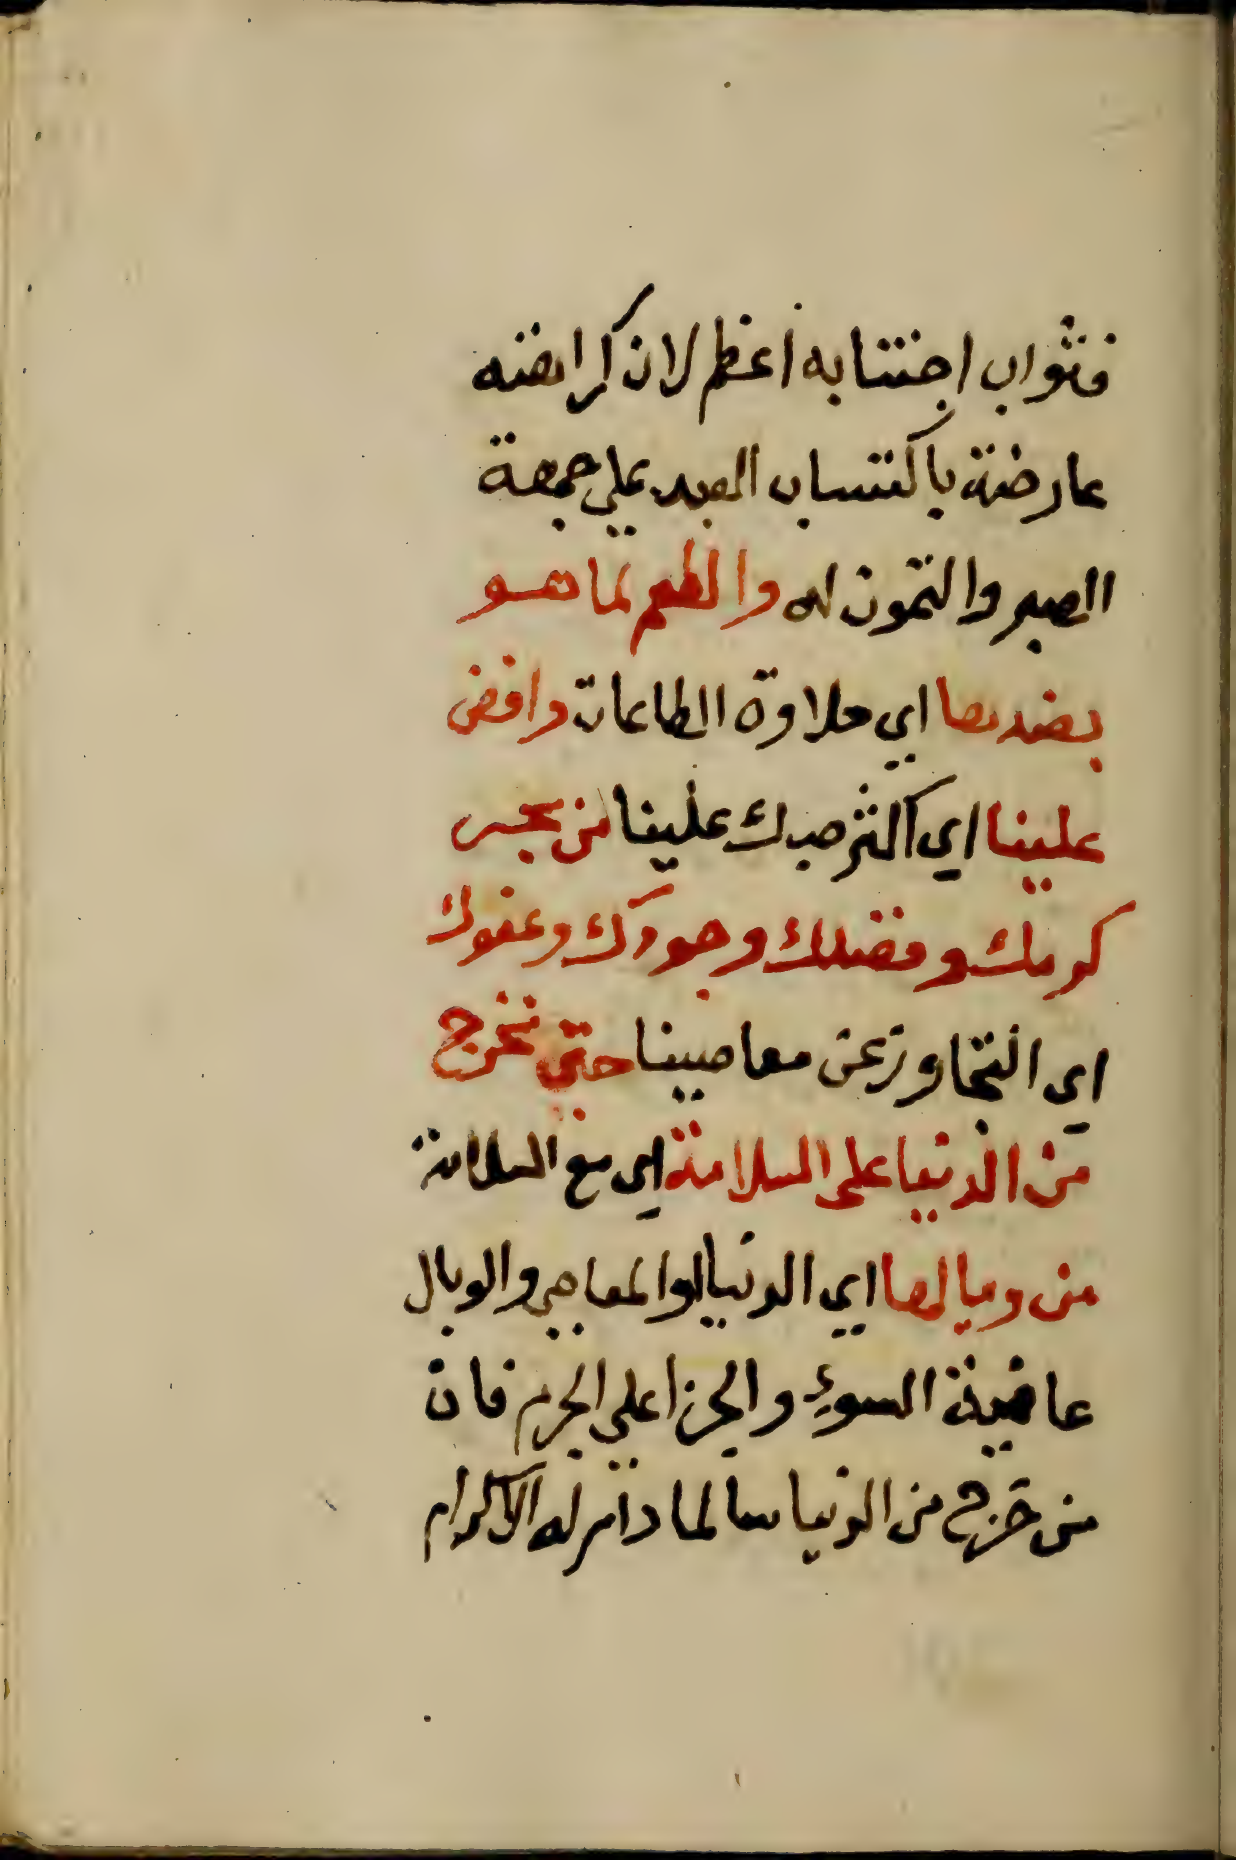 فثواب اجتنابه اعظم لان كراهته
عارضة باكتساب العبد علي جهة
الصبر والتمون له والطعم لما هو
بضدها اي حلاوة الطاعات وافض
علينا اي اكثر صبك علينا من بحر
كرمك وفضلك وجودك وعفوك
اي التجاوز عن معاصينا حتي نخرج
من الدنيا علي السلامة اي مع السلامة
من وبالها اي الدنيا او المعاصي والوبال
عاقبة السوء والجزا علي الجرم فان
من خرج من الدنيا سالما دام له الاكرام